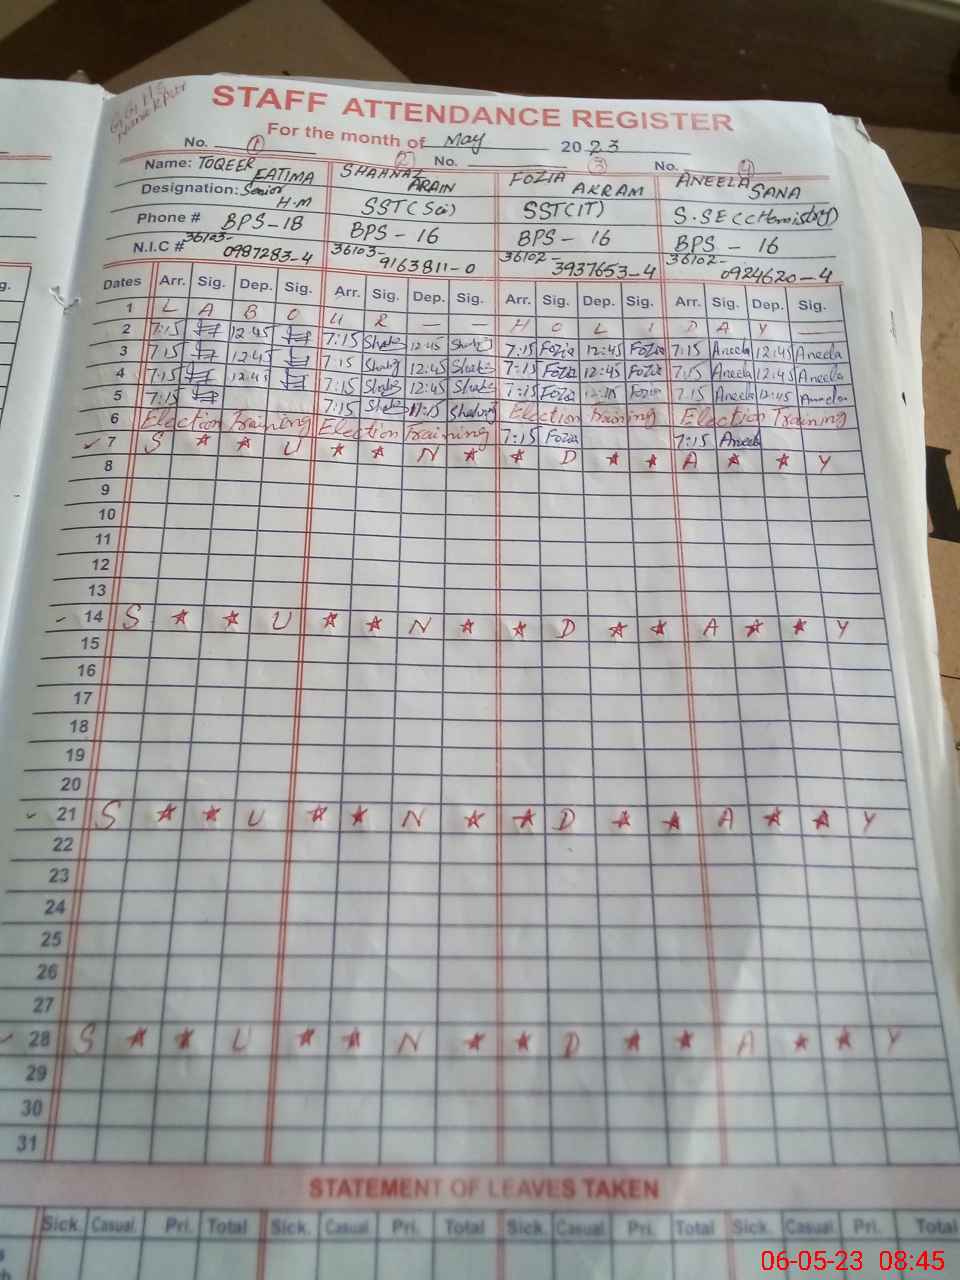 GGHS
STAFF ATTENDANCE REGISTER
For the month of May 2023
No. 1 2 No. 3 No. 4
Name: TOQEER FATIMA SHAHNAZ ARAIN FOZIA AKRAM ANEELA SANA
Designation: Senior H.M SST(Sci) SST(IT) S.SE(Chemistry)
Phone # BPS-18 BPS-16 BPS-16 BPS-16
N.I.C # 36103-0987283-4 36103-9163811-0 36102-3937653-4 36102-0924620-4
Dates Arr. Sig. Dep. Sig. Arr. Sig. Dep. Sig. Arr. Sig. Dep. Sig. Arr. Sig. Dep. Sig.
1 L A B O U R — — H O L I D A Y —
2 7:15 12:45 7:15 12:45 7:15 Fozia 12:45 Fozia 7:15 Aneela 12:45 Aneela
3 7:15 12:45 7:15 12:45 7:15 Fozia 12:45 Fozia 7:15 Aneela 12:45 Aneela
4 7:15 12:45 7:15 12:45 7:15 Fozia Fozia 7:15 Aneela 12:45
5 7:15 7:15 11:15
6 Election Training Election Training Election Training Election Training
7:15 Fozia 7:15 Aneela
7 S ★ ★ U ★ ★ N ★ ★ D ★ ★ A ★ ★ Y
8
9
10
11
12
13
14 S ★ ★ U ★ ★ N ★ ★ D ★ ★ A ★ ★ Y
15
16
17
18
19
20
21 S ★ ★ U ★ ★ N ★ ★ D ★ ★ A ★ ★ Y
22
23
24
25
26
27
28 S ★ ★ U ★ ★ N ★ ★ D ★ ★ A ★ ★ Y
29
30
31
STATEMENT OF LEAVES TAKEN
Sick. Casual. Pri. Total Sick. Casual. Pri. Total Sick. Casual. Pri. Total Sick. Casual. Pri. Total
06-05-23 08:45